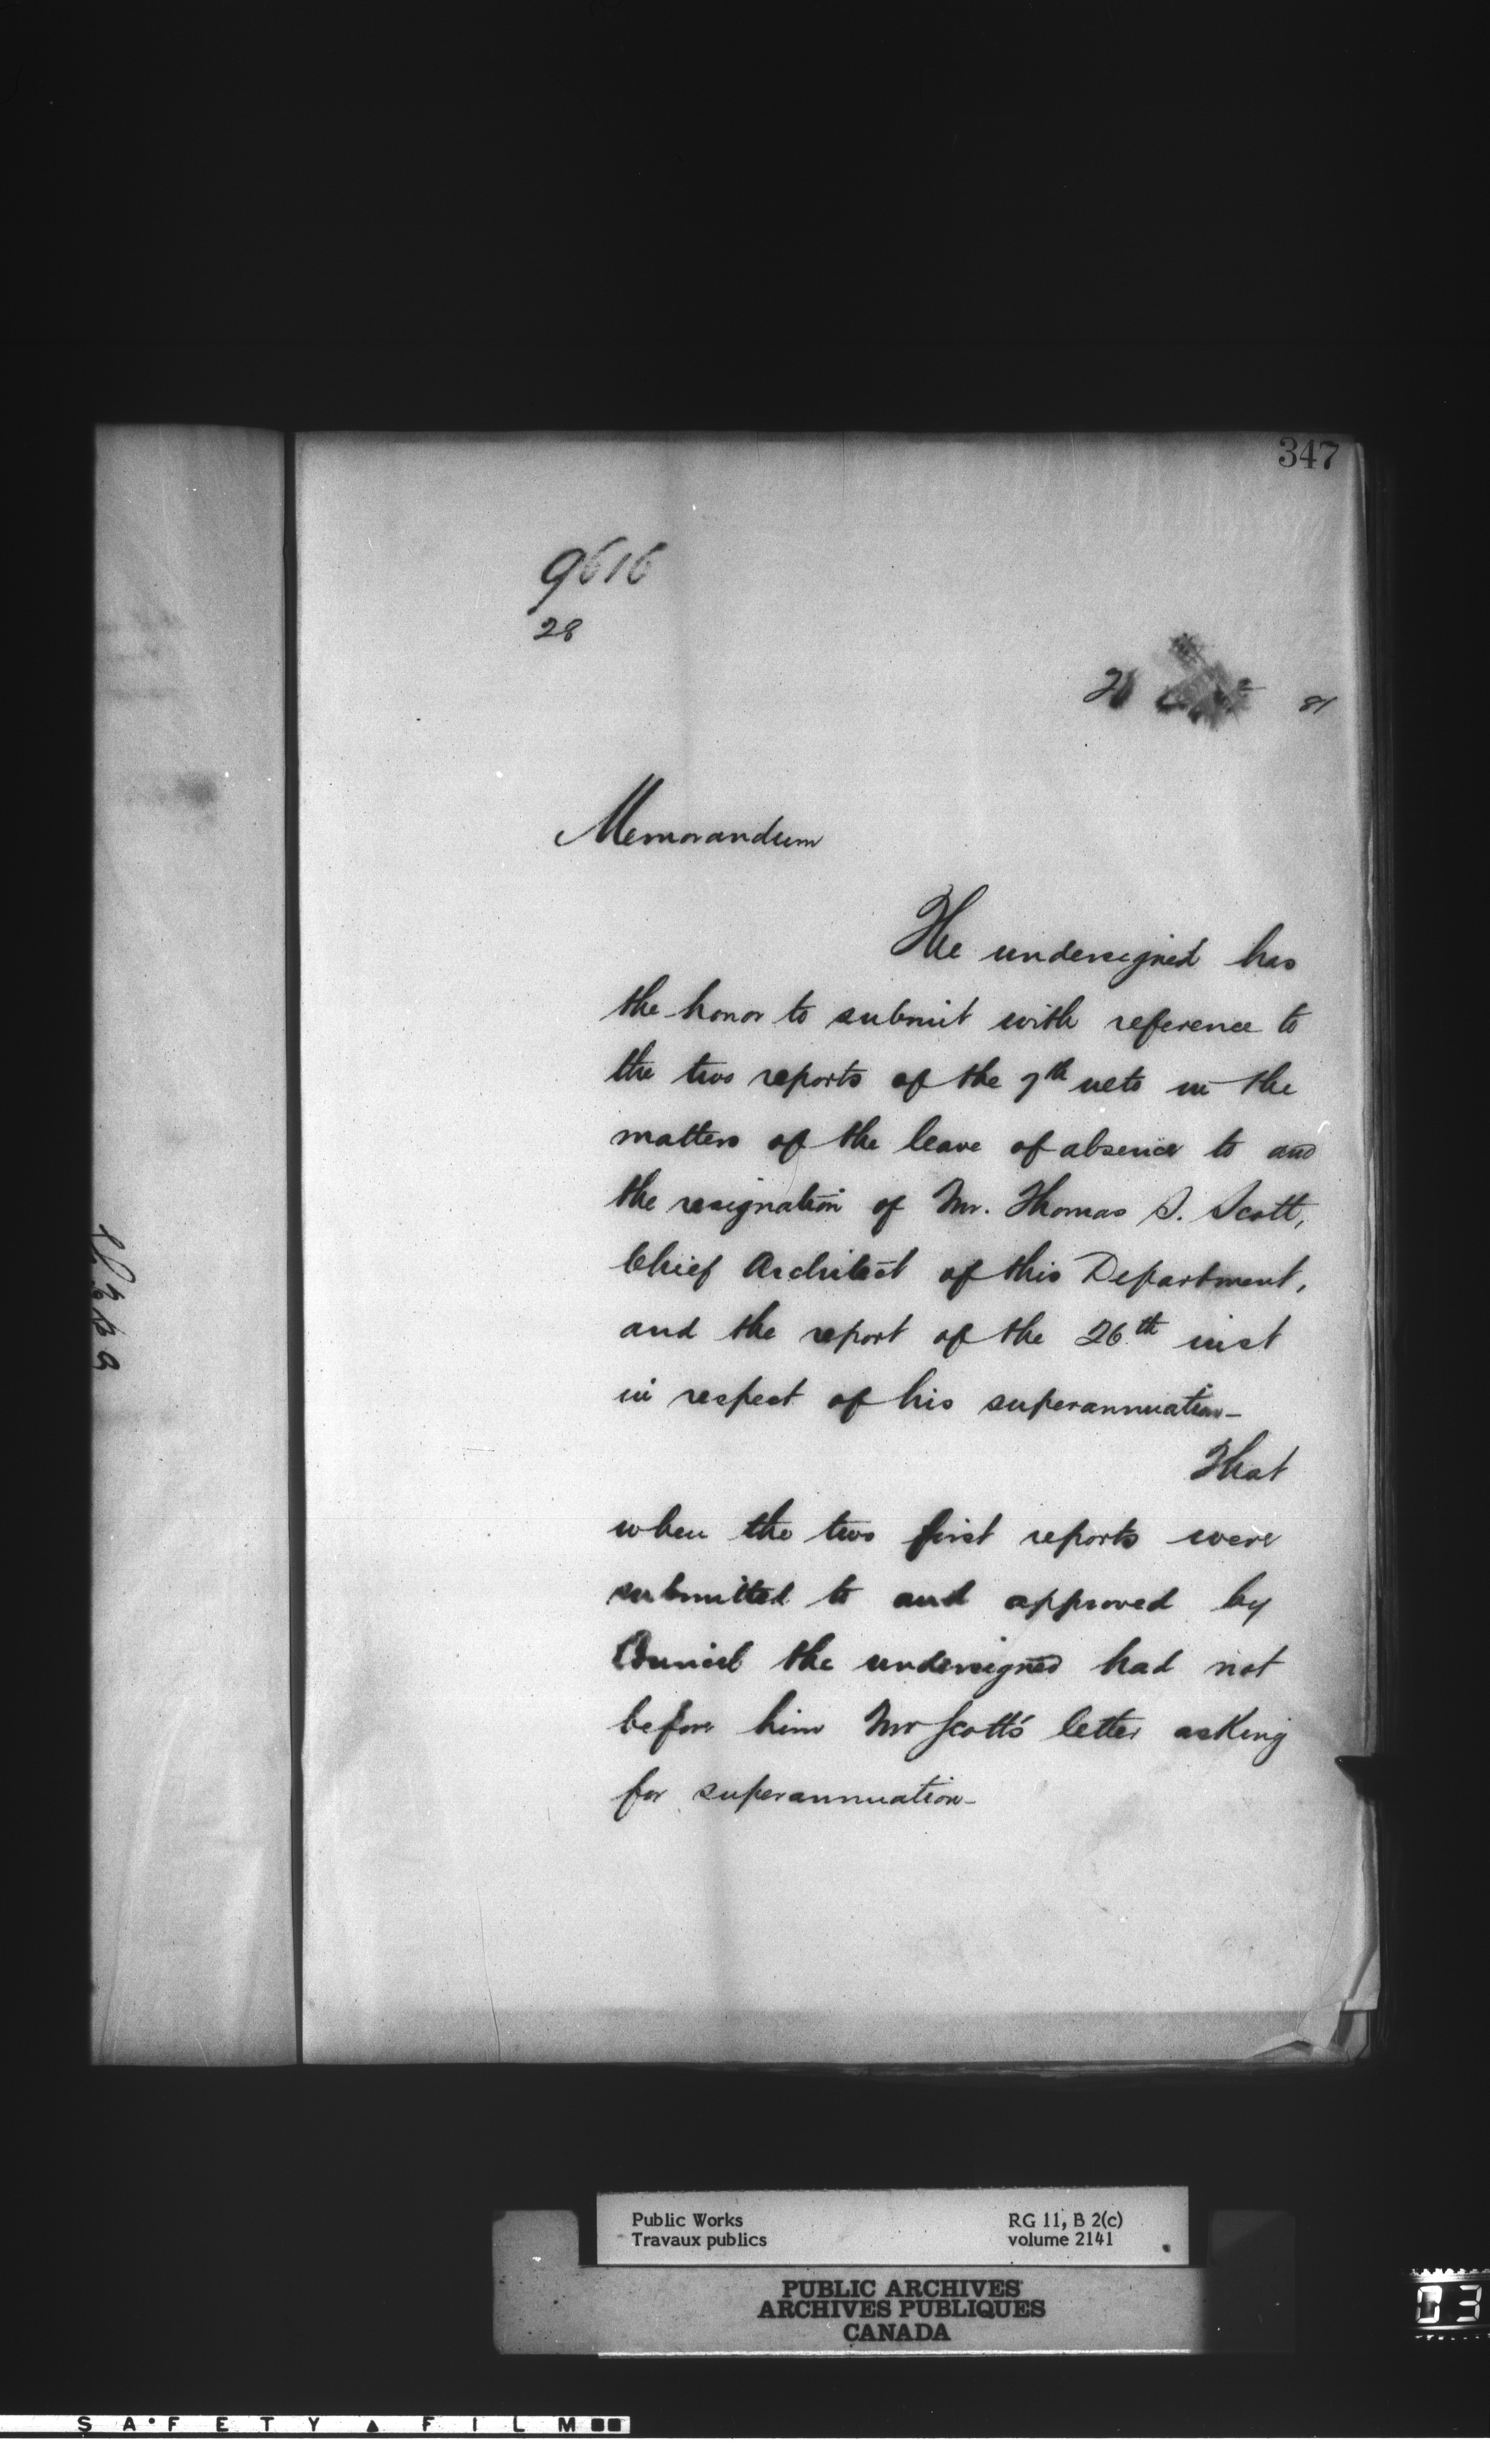 347
9616
28
81
Memorandum
The undersigned has
the honor to submit with reference to
the two reports of the 7th ulto in the
matters of the leave of absence to and
the resignation of Mr. Thomas S. Scott,
Chief Architect of this Department,
and the report of the 26th inst
in respect of his superannuation-
That
when the two first reports were
submitted to and approved by
Council the undersigned had not
before him Mr Scott's letter asking
for superannuation-
Public Works
Travaux publics
RG 11, B 2(c)
volume 2141
PUBLIC ARCHIVES
ARCHIVES PUBLIQUES
CANADA
03
SAFETY FILM